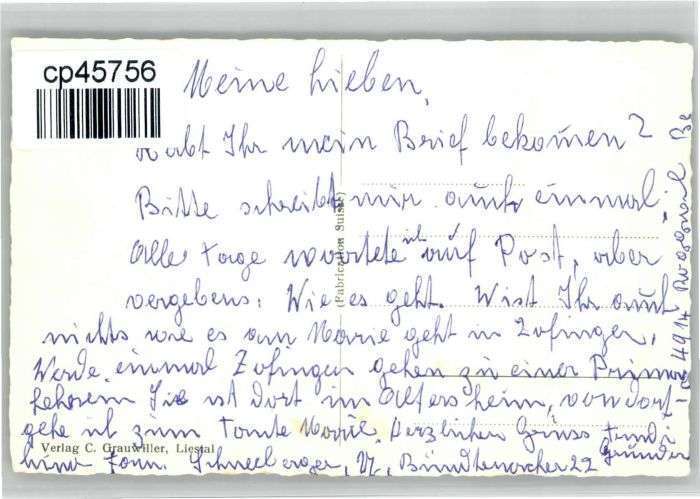 cp45756
Meine Lieben,
Habt Ihr mein Brief bekommen?
Bitte schreibt mir auch einmal,
Alle Tage wartete ich auf Post, aber
vergebens. Wie es geht. Wist Ihr auch
nichts wie es an Marie geht in Zofingen,
Werde einmal Zofingen gehen zu einer
Sie ist dort im Altersheim, von dort
gehe ich zum Tante Marie. Herzlichen Grüss Trudi
Schneeberger, 22
4914 Roggwil Be
(Fabrication Suisse)
Verlag C. Grauwiller, Liestal